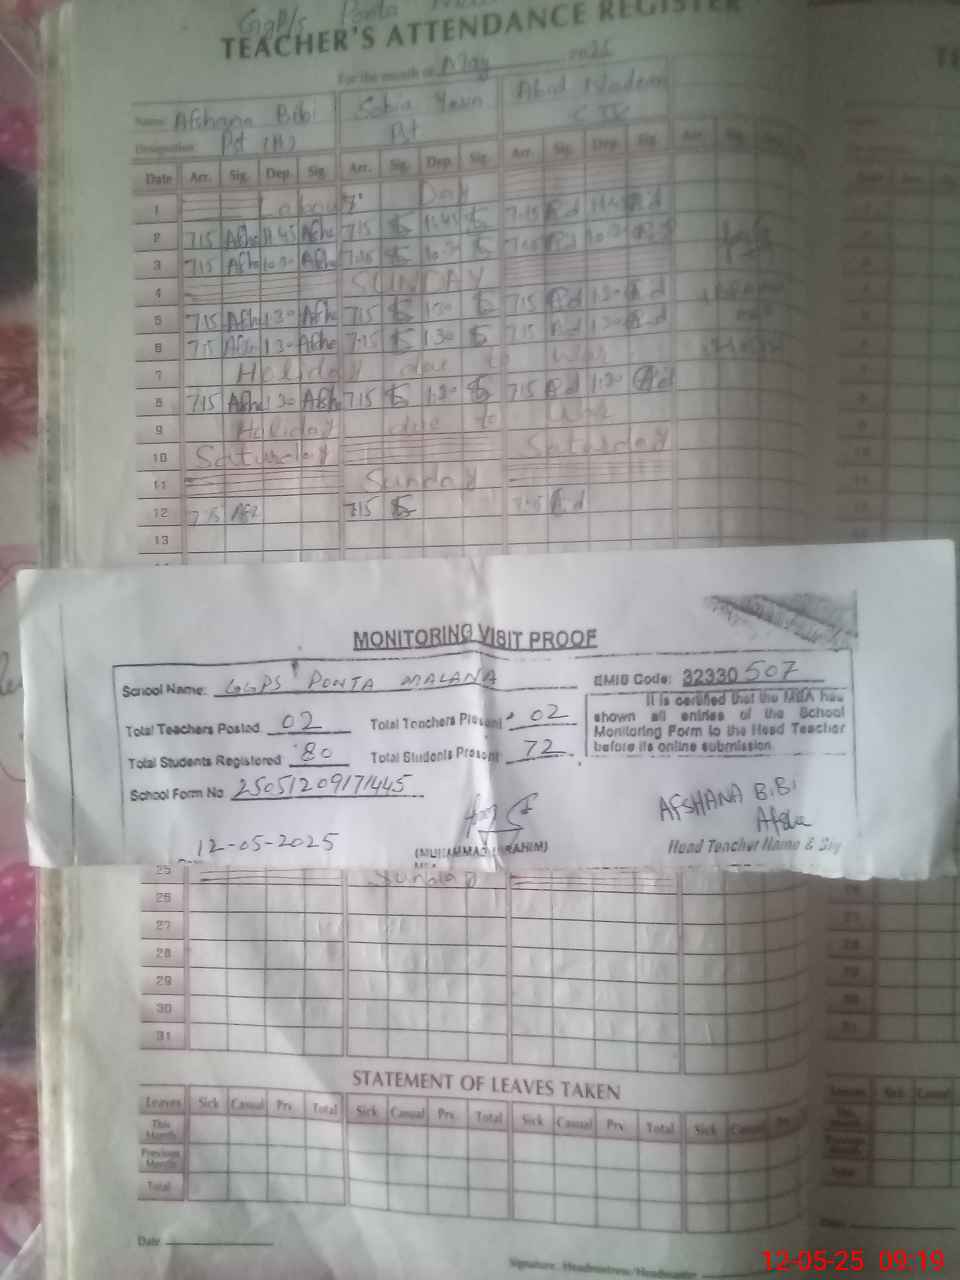 GGP/S Ponta
TEACHER'S ATTENDANCE REGISTER
For the month of May 2025
Name Afshana Bibi Sobia Yasin Abid Nadeem
Designation Pst (H) Pst
Date Arr. Sig. Dep. Sig. Arr. Sig. Dep. Sig. Arr. Sig. Dep. Sig. Arr. Sig.
1 Labour Day
2 7.15 Afsha 11.45 Afsha 7.15 11.45 7.15 A.d 11.45 A.d
3 7.15 Afsha 10.30 Afsha 7.15 10.30 7.15 A.d 10.30 A.d
4 SUNDAY
5 7.15 Afsha 1.30 Afsha 7.15 1.30 7.15 A.d 1.30 A.d
6 7.15 Afsha 1.30 Afsha 7.15 1.30 7.15 A.d 1.30 A.d
7 Holiday due to War
8 7.15 Afsha 1.30 Afsha 7.15 1.30 7.15 A.d 1.30 A.d
9 Holiday due to War
10 Saturday Saturday
11 Sunday
12 7.15 7.15 7.15 A.d
13
MONITORING VISIT PROOF
School Name: GGPS PONTA MALANA EMIS Code: 32330 507
Total Teachers Posted 02 Total Teachers Present 02
Total Students Registered 80 Total Students Present 72
It is certified that the MEA has
shown all entries of the School
Monitoring Form to the Head Teacher
before its online submission.
School Form No 25051209171445
AFSHANA BiBi
Afsha
12-05-2025
(MUHAMMAD IBRAHIM)
Head Teacher Name & Sig
25 Sunday
26
27
28
29
30
31
STATEMENT OF LEAVES TAKEN
Leaves Sick Casual Prv. Total Sick Casual Prv. Total Sick Casual Prv. Total Sick Casual
This Month
Previous Month
Total
Date
Signature: Headmistress/Headmaster
12-05-25 09:19